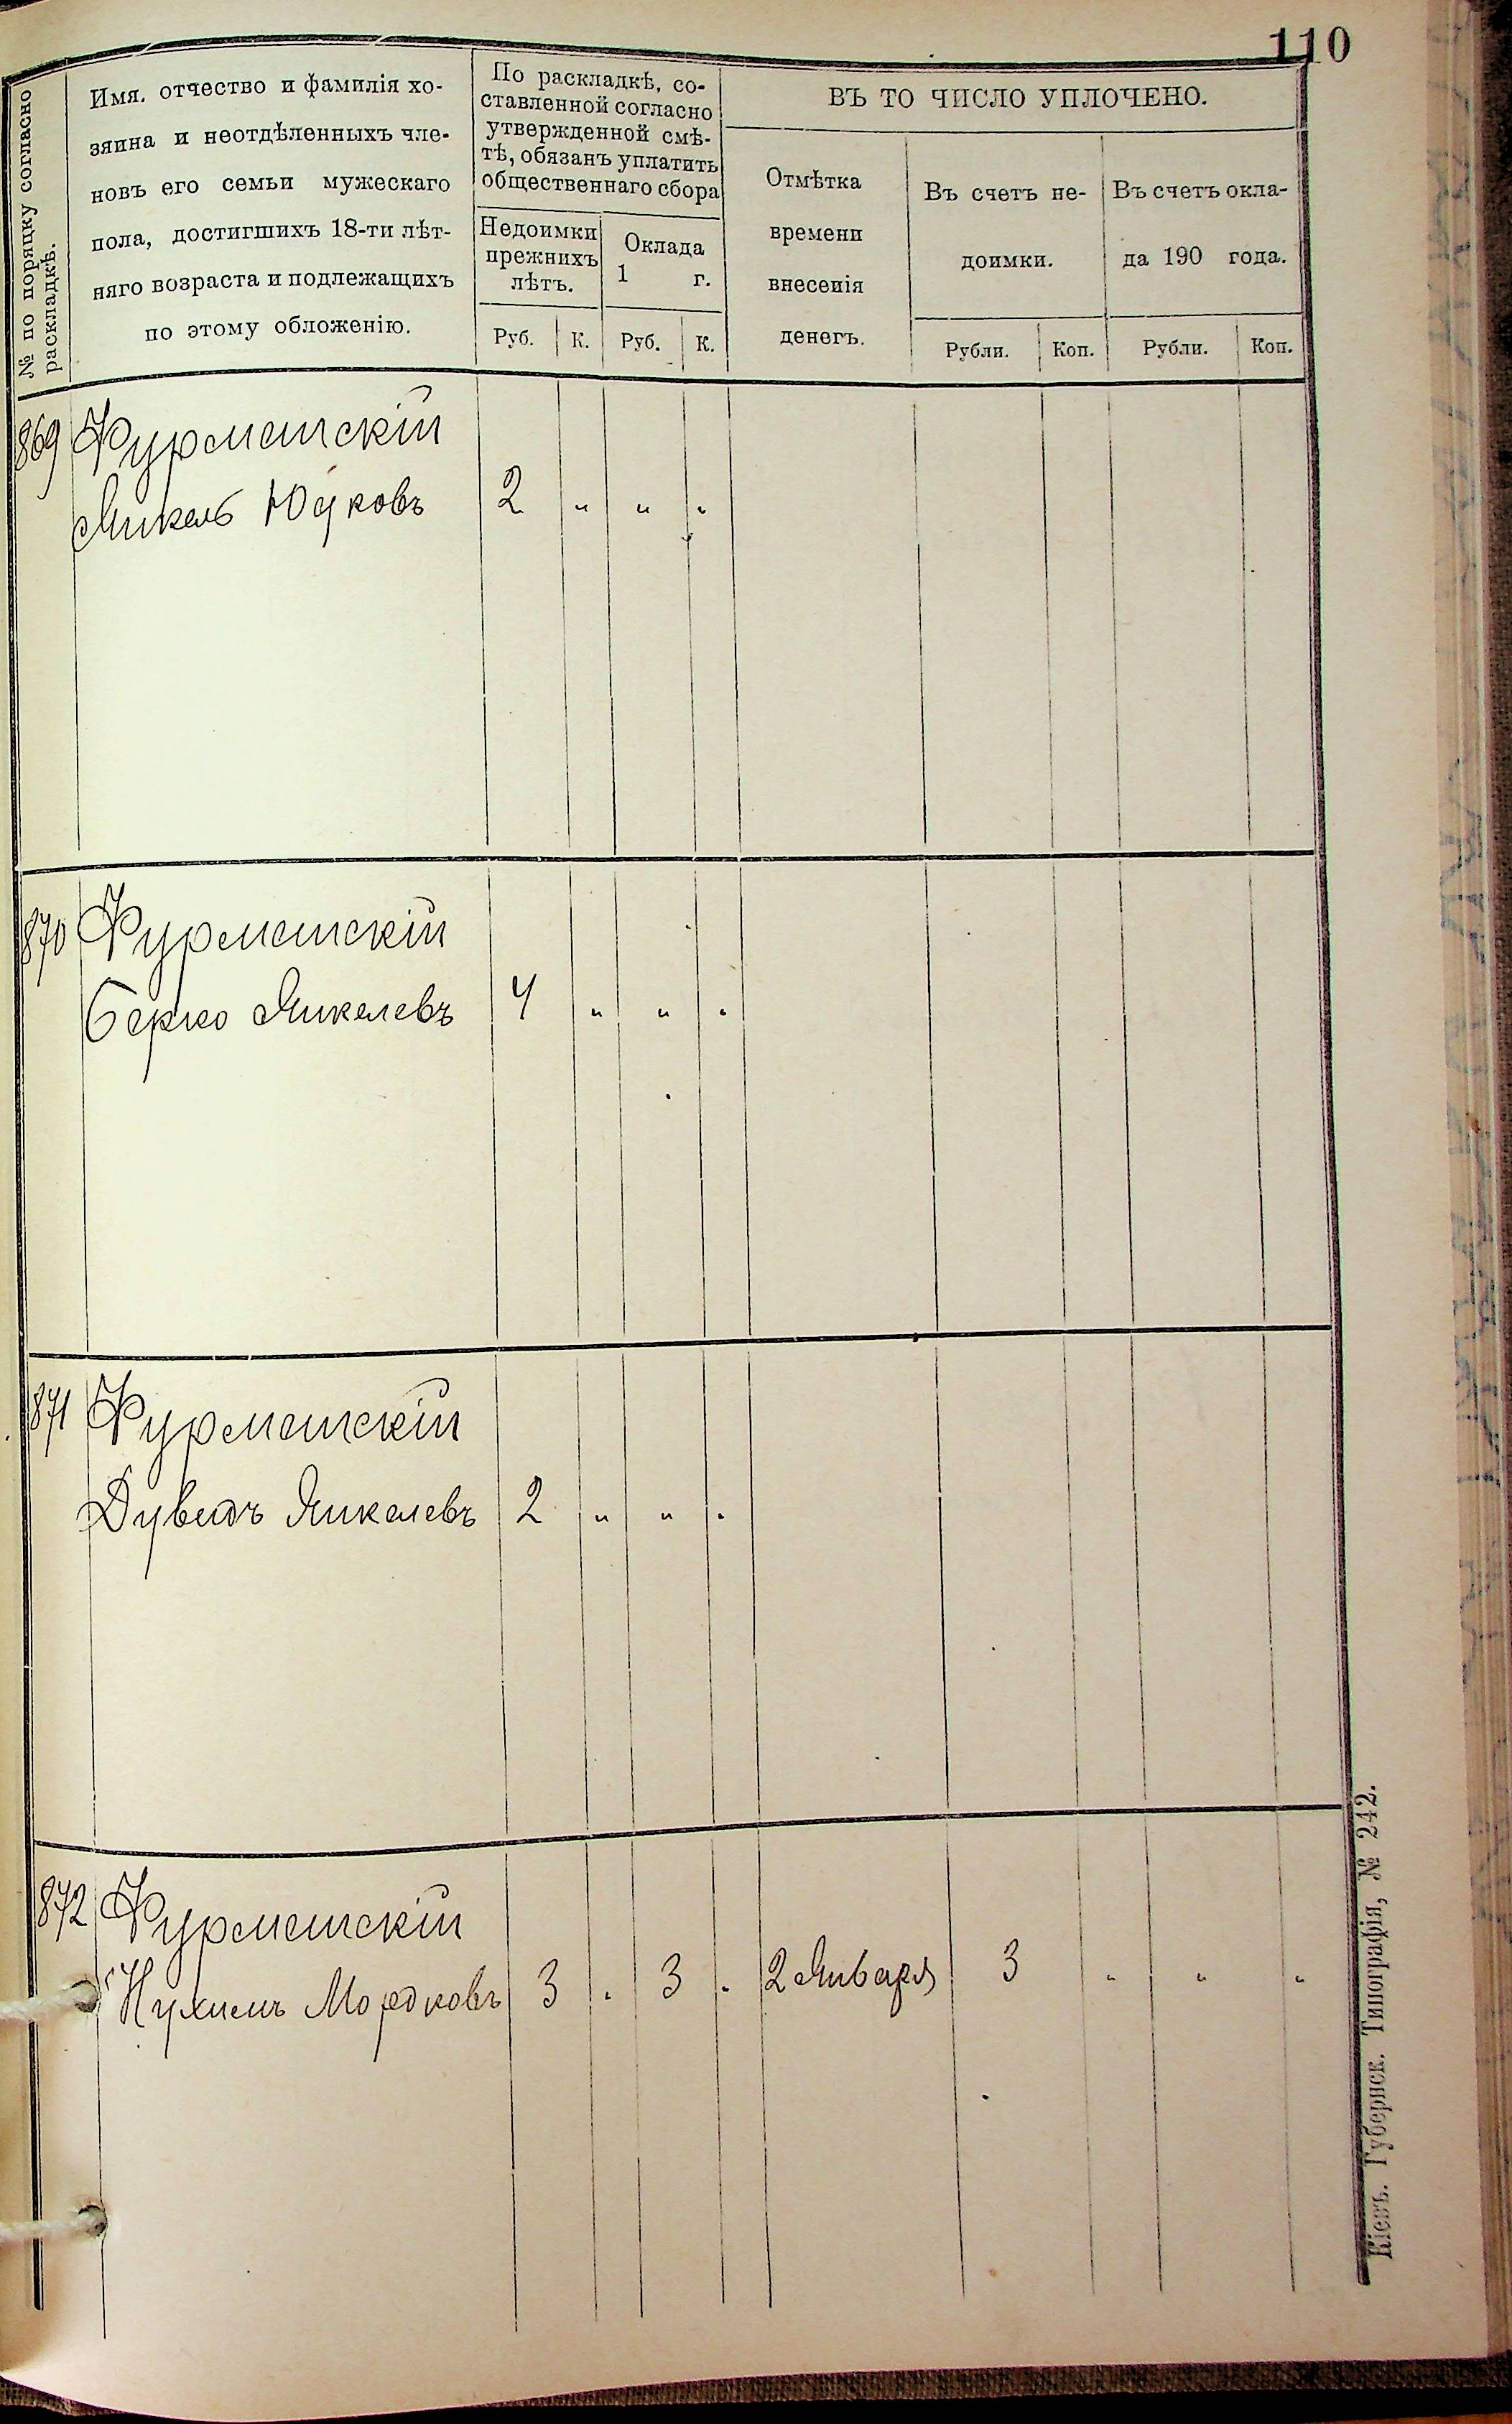 110
№ по порядку согласно
раскладкѣ.
Имя, отчество и фамилія хо-
зяина и неотдѣленныхъ чле-
новъ его семьи мужескаго
пола, достигшихъ 18-ти лѣт-
няго возраста и подлежащихъ
по этому обложенію.
По раскладкѣ, со-
ставленной согласно
утвержденной смѣ-
тѣ, обязанъ уплатить
общественнаго сбора
Недоимки
прежнихъ
лѣтъ.
Оклада
1 г.
Руб. К. Руб. К.
ВЪ ТО ЧИСЛО УПЛОЧЕНО.
Отмѣтка
времени
внесенія
денегъ.
Въ счетъ не-
доимки.
Въ счетъ окла-
да 190 года.
Рубли. Коп. Рубли. Коп.
869 Фурманскій
Янкель 2 " " "
870 Фурманскій
Берко Янкелевъ 4 " " "
871 Фурманскій
Дувидъ Янкелевъ 2 " " "
872 Фурманскій
Нухимъ Мордковъ 3 " 3 " 2 Января 3 " " "
Кіевъ. Губернск. Типографія, № 242.